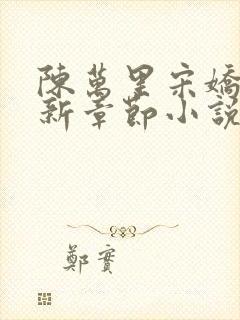 陳萬里宋嬌
新章節小說
鄭賓